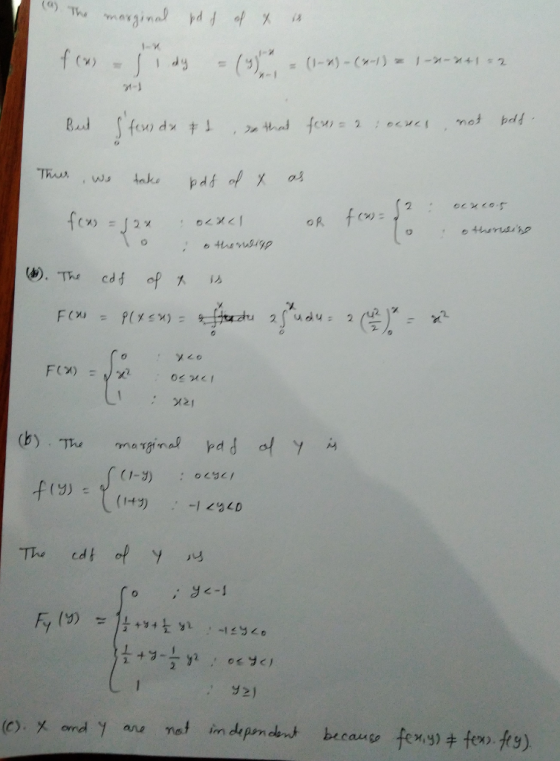 (a) The marginal pdf of X is
f(x) = ∫_{x-1}^{1-x} 1 dy = (y)_{x-1}^{1-x} = (1-x)-(x-1) = 1-x-x+1 = 2
But ∫_0^1 f(x) dx ≠ 1 , so that f(x) = 2 : 0<x<1 , not pdf.
Thus, we take pdf of X as
f(x) = { 2x : 0<x<1 OR f(x) = { 2 : 0<x<0.5
0 : otherwise 0 : otherwise
(b). The cdf of X is
F(x) = P(X≤x) = 2∫_0^x u du = 2 (u²/2)_0^x = x²
F(x) = { 0 : x<0
x² : 0≤x<1
1 : x≥1
(b). The marginal pdf of Y is
f(y) = { (1-y) : 0<y<1
(1+y) : -1<y<0
The cdf of Y is
F_Y(y) = { 0 ; y<-1
1/2 + y + 1/2 y² : -1≤y<0
1/2 + y - 1/2 y² : 0≤y<1
1 : y≥1
(c). X and Y are not independent because f(x,y) ≠ f(x). f(y).